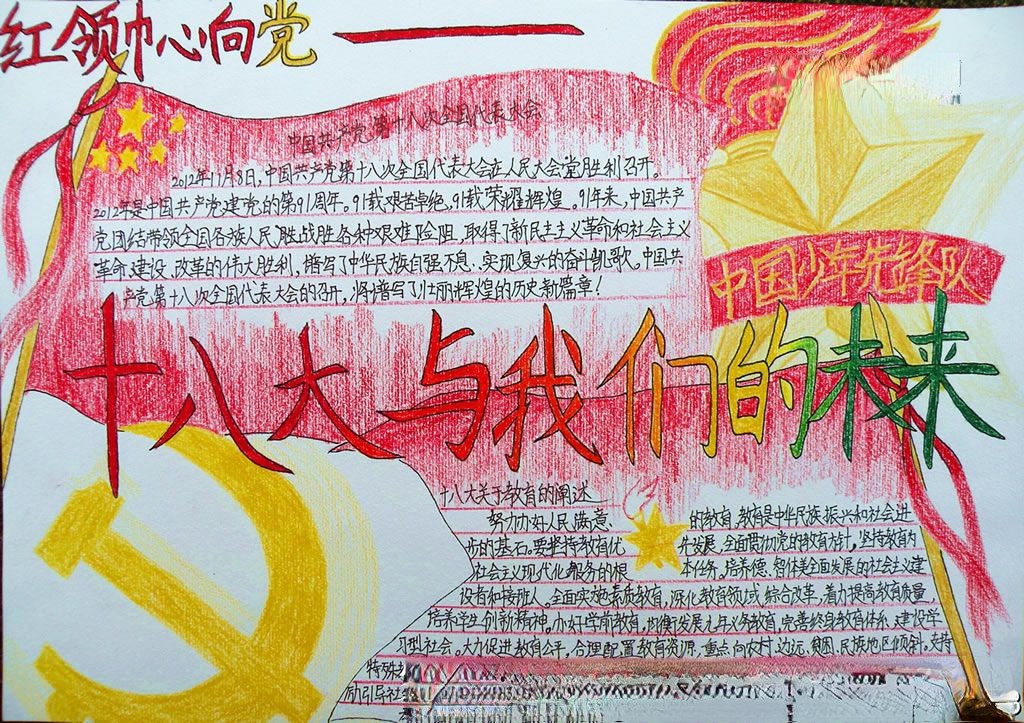 红领巾心向党
中国共产党第十八次全国代表大会
2012年11月8日,中国共产党第十八次全国代表大会在人民大会堂胜利召开。
2012年是中国共产党建党的第91周年。91载艰苦卓绝,91载荣耀辉煌。91年来,中国共产
党团结带领全国各族人民,胜战胜各种艰难险阻,取得了新民主主义革命和社会主义
革命、建设、改革的伟大胜利,谱写了中华民族自强不息、实现复兴的奋斗凯歌。中国共
产党第十八次全国代表大会的召开,将谱写了壮丽辉煌的历史新篇章!
中国少年先锋队
十八大与我们的未来
十八大关于教育的阐述
努力办好人民满意、的教育,教育是中华民族振兴和社会进
步的基石。要坚持教育优先发展,全面贯彻党的教育方针,坚持教育为
社会主义现代化服务的根本任务。培养德、智体美全面发展的社会主义建
设者和接班人。全面实施素质教育,深化教育领域综合改革,着力提高教育质量,
培养学生创新精神。办好学前教育,均衡发展九年义务教育,完善终身教育体系、建设学
习型社会。大力促进教育公平,合理配置教育资源,重点向农村、边远、贫困、民族地区倾斜,支持
特殊
励引导社